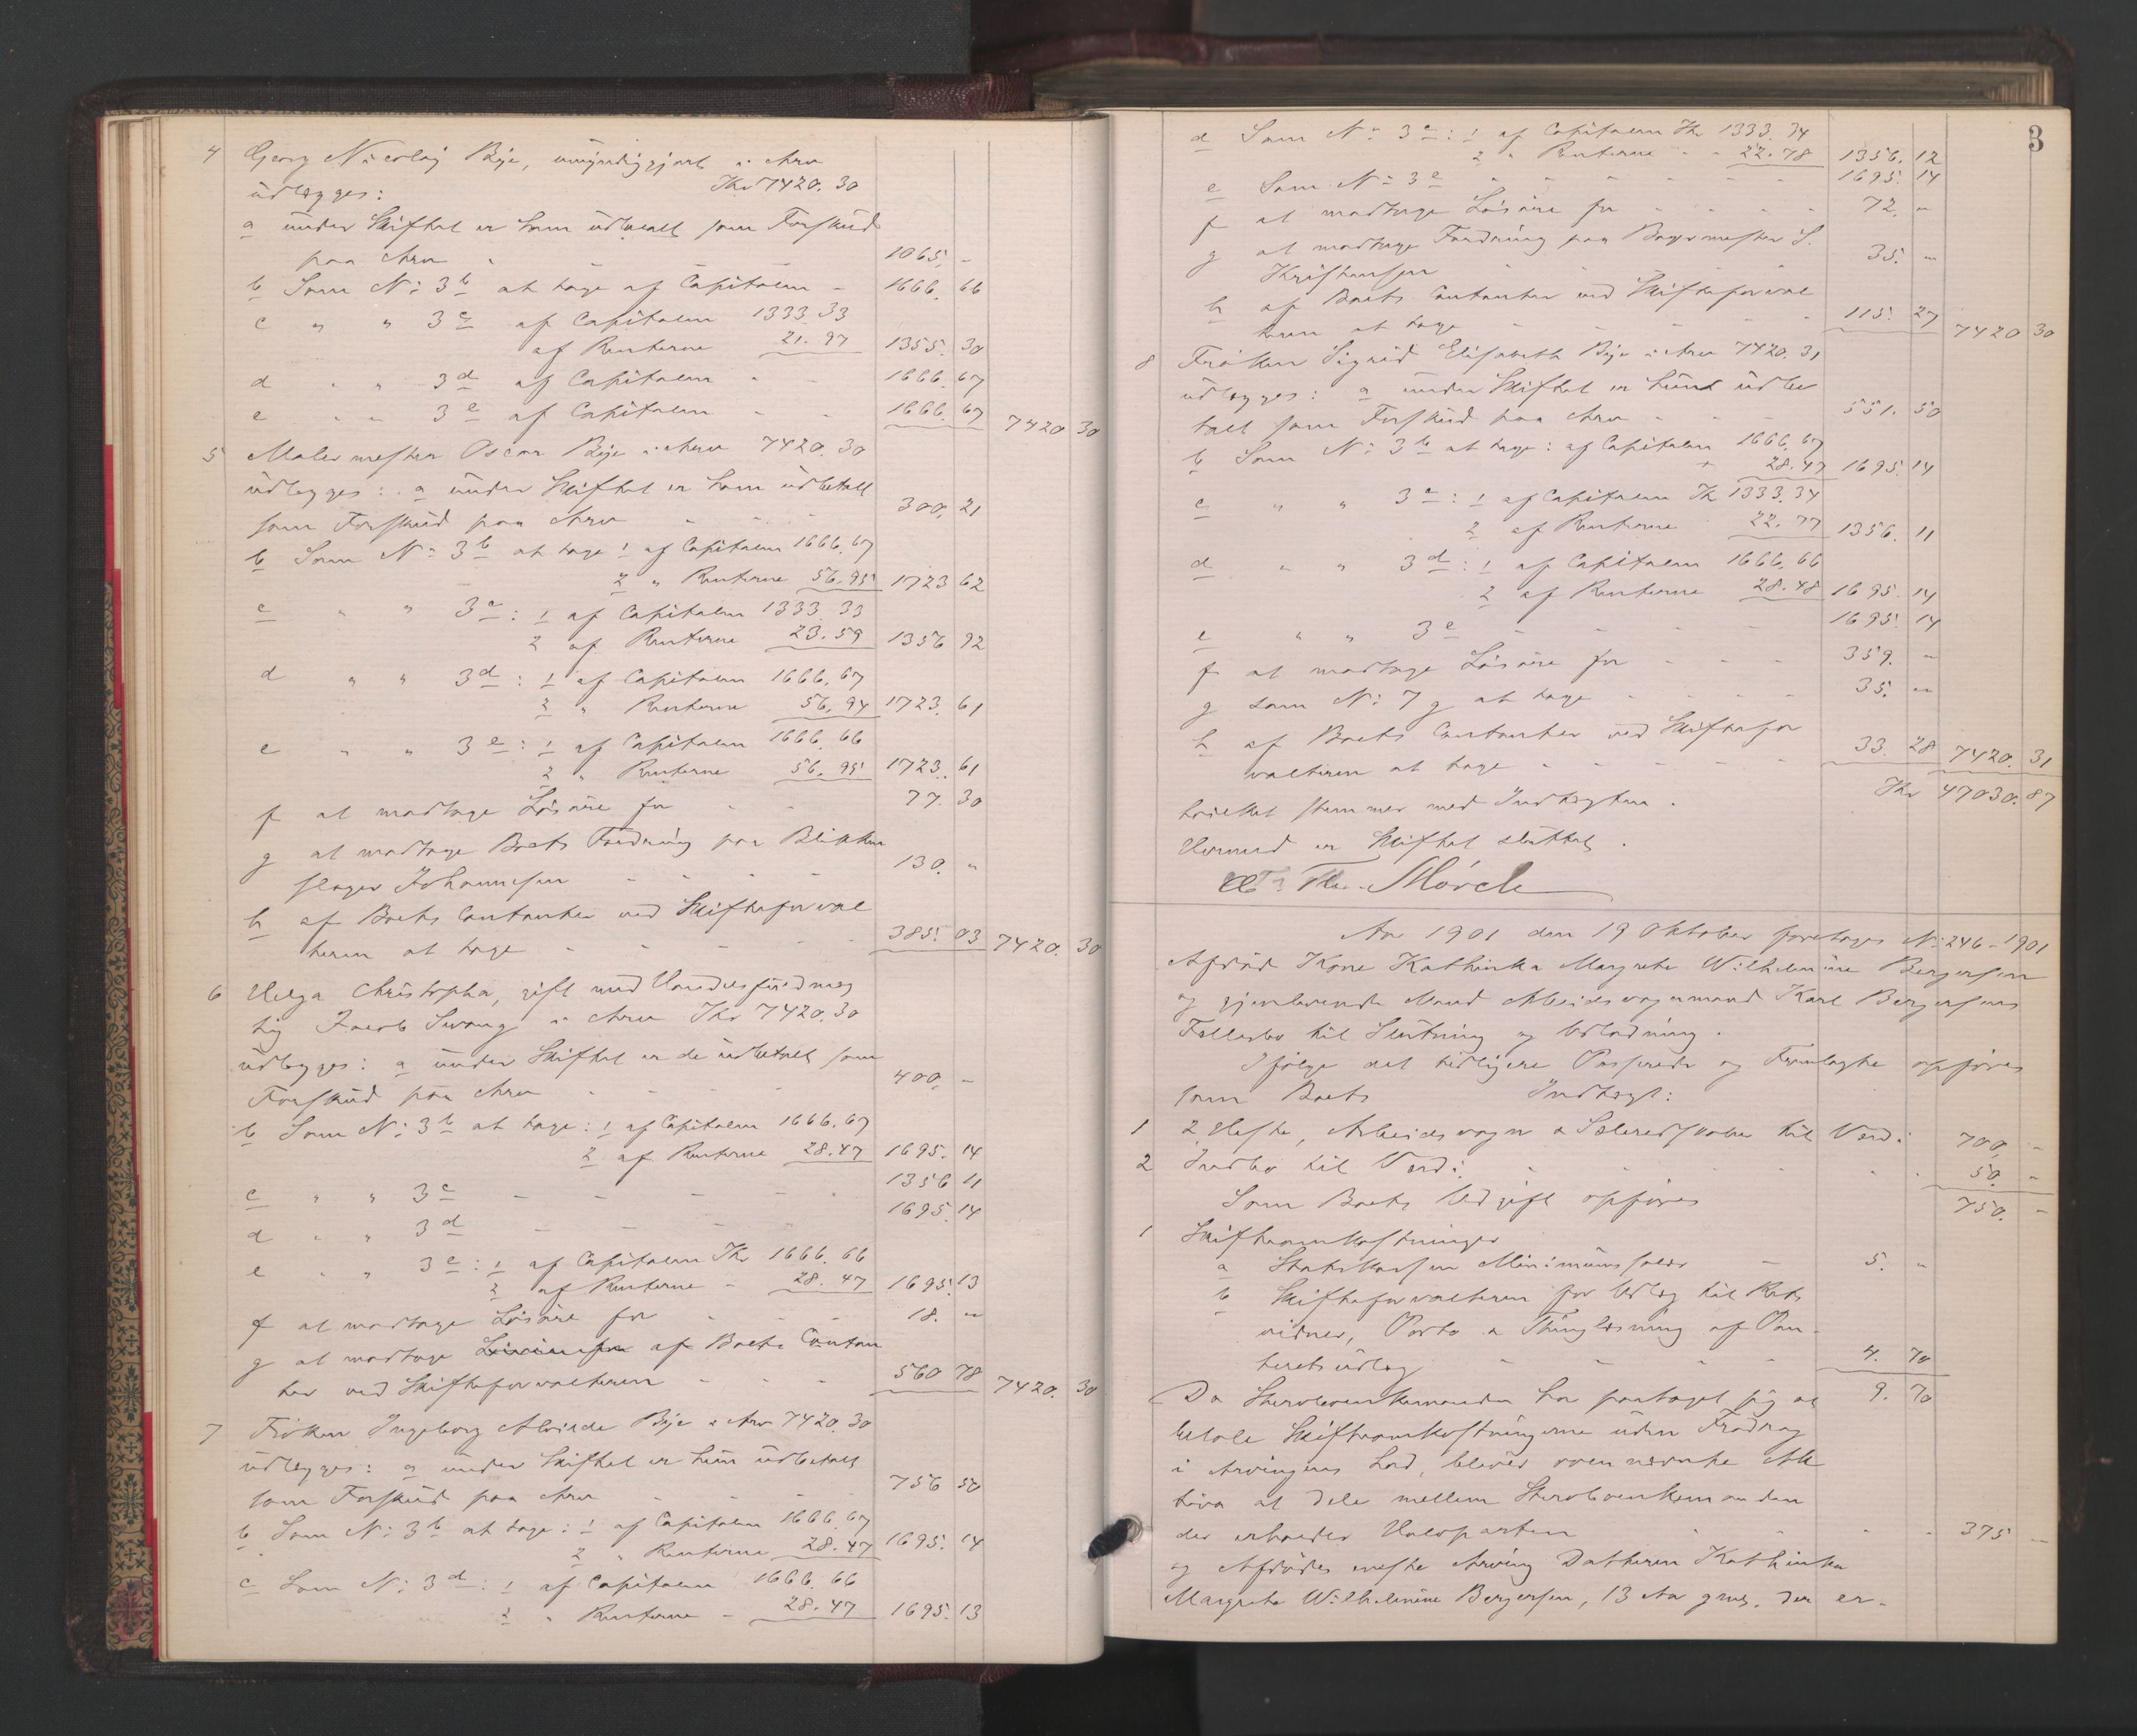 4 Georg Nicolaj Bye, umyndiggjort i Arv
udlægges: Kr 7420.30
a under Skiftet er ham udbetalt som Forskud
paa Arv - 1065. -
b Som No 3 b at tage af Capitalen - 1666. 66
c " " 3 c af Capitalen 1333.33
af Renterne 21.97 1355. 30
d " " 3 d af Capitalen - 1666. 67
e " " 3 e af Capitalen - 1666. 67 7420 30
5 Malermester Oscar Bye i Arv 7420.30
udlægges: a under Skiftet er ham udbetalt
som Forskud paa Arv - 300. 21
b Som No 3 b at tage 1 af Capitalen 1666.67
2 " Renterne 56.95 1723 62
c " " 3 c: 1 af Capitalen 1333.33
2 af Renterne 23.59 1356 92
d " " 3 d: 1 af Capitalen 1666.67
2 " Renterne 56.94 1723. 61
e " " 3 e: 1 af Capitalen 1666.66
2 " Renterne 56.95 1723. 61
f at modtage Løsøre for - 77. 30
g at modtage Boets Fordring paa Blikken
slager Johannesen - 130. "
h af Boets Contanter ved Skifteforval
teren at tage - 385. 03 7420. 30
6 Helga Christopha, gift med Handelsfuldmæg
tig Jacob Svang i Arv Kr 7420.30
udlægges: a under Skiftet er de udbetalt som
Forskud paa Arv - 400. -
b Som No 3 b at tage: 1 af Capitalen 1666.67
2 af Renterne 28.47 1695. 14
c " " 3 c - 1356 11
d " " 3 d - 1695. 14
e " " 3 e: 1 af Capitalen Kr 1666.66
2 af Renterne - 28.47 1695. 13
f at modtage Løsøre for - 18. "
g at modtage af Boets Contan
ter ved Skifteforvalteren - 560 78 7420. 30
7 Frøken Ingeborg Alvilde Bye i Arv 7420.30
udlægges: a under Skiftet er hun udbetalt
som Forskud paa Arv - 756 50
b Som No 3 b at tage: 1 af Capitalen 1666.67
2 " Renterne 28.47 1695. 14
c Som No 3 d: 1 af Capitalen 1666.66
2 " Renterne - 28.47 1695. 13
3
d Som No 3 c: 1 af Capitalen Kr 1333.34
2 " Renterne - 22.78 1356. 12
e Som No 3 e - 1695. 14
f at modtage Løsøre for - 72. "
g at modtage Fordring paa Bagermester S.
Kristensen - 35. "
h af Boets Contanter ved Skifteforval
teren at tage - 115. 27 7420 30
8 Frøken Sigrid Elisabeth Bye i Arv 7420.31
udlægges: a under Skiftet er hun udbe
talt som Forskud paa Arv - 551. 50
b Som No 3 b at tage: af Capitalen 1666.67
+ 28.47 1695. 14
c " " 3 c: 1 af Capitalen Kr 1333.34
2 af Renterne 22.77 1356. 11
d " " 3 d: 1 af Capitalen 1666.66
2 af Renterne 28.48 1695. 14
e " " 3 e - 1695. 14
f at modtage Løsøre for - 359. "
g som No 7 g at tage - 35. "
h af Boets Contanter ved Skiftefor
valteren at tage - 33. 28 7420. 31
hvilket stemmer med Indtægten. Kr 47030. 87
Hermed er Skiftet sluttet.
Mørch
Aar 1901 den 19 Oktober foretages No 246-1901
Afdød Kone Kathinka Margrete Wilhelmine Bergersen
og gjenlevende Mand Arbeidsvognmand Karl Bergersens
Fællesbo til Slutning og Udlodning.
Ifølge det tidligere Passerede og Fremlagte opføres
som Boets Indtægt:
1 2 Heste, Arbeidsvogn & Seleredskaber til Værdi 700 -
2 Indbo til Værdi - 50. "
Som Boets Udgift opføres 750. -
1 Skifteomkostninger
a Statskassen Minimumsgebyr - 5. "
b Skifteforvalteren for Udlæg til Rets
vidner, Porto & Thinglæsning af Pan-
teretsudlæg - 4. 70
Da Stervboenkemanden har paataget sig at 9. 70
betale Skifteomkostningerne uden Fradrag
i Arvingens Lod, bliver ovennævnte Ak
tiva at dele mellem Stervboenkemanden
der erholder Halvparten - 375 -
og Afdødes eneste Arving Datteren Kathinka
Margrete Wilhelmine Bergersen, 13 Aar gml. der er-